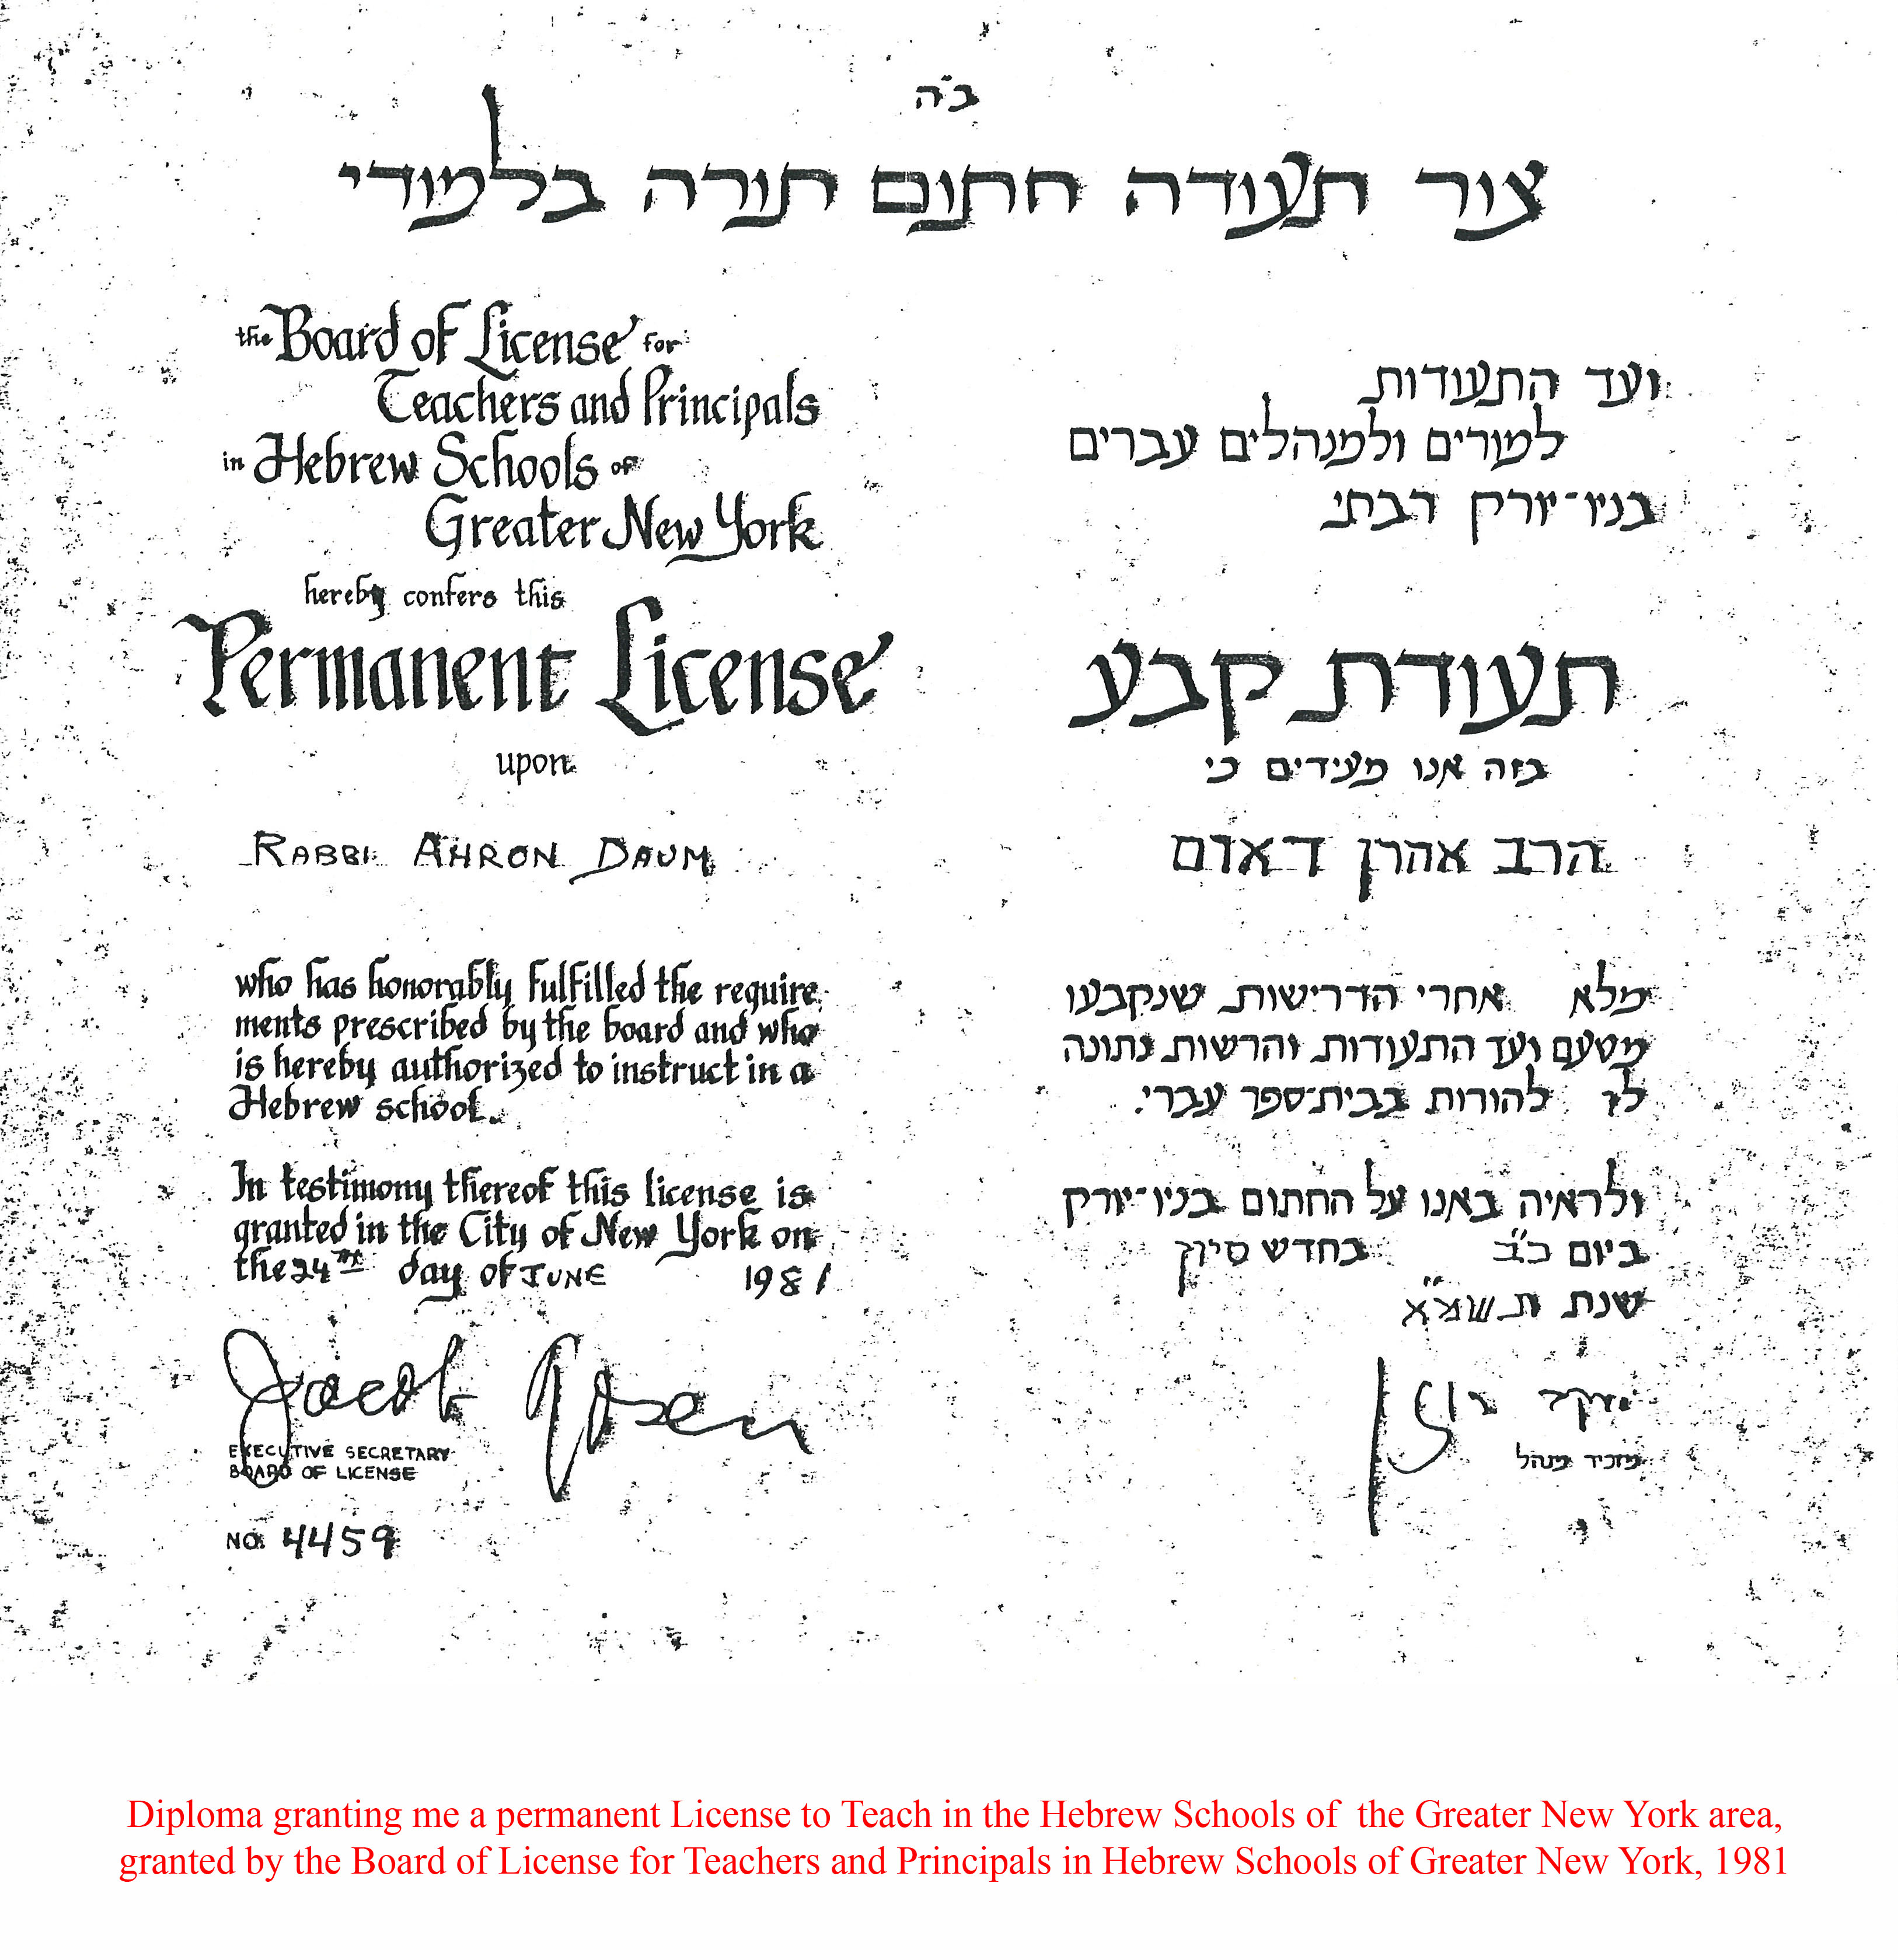 ב״ה
צור תעודה חתום תורה בלמודי
the Board of License for
Teachers and Principals
in Hebrew Schools of
Greater New York
hereby confers this
Permanent License
upon
RABBI AHRON DAUM
who has honorably fulfilled the require
ments prescribed by the board and who
is hereby authorized to instruct in a
Hebrew school.
In testimony thereof this license is
granted in the City of New York on
the 24TH day of JUNE 1981
EXECUTIVE SECRETARY
BOARD OF LICENSE
NO. 4459
ועד התעודות
למורים ולמנהלים עברים
בניו־יורק רבתי
תעודת קבע
בזה אנו מעידים כי
הרב אהרן דאדם
מלא אחרי הדרישות שנקבעו
מטעם ועד התעודות והרשות נתונה
לו להורות בבית־ספר עברי.
ולראיה באנו על החתום בניו־יורק
ביום כ״ב בחדש סיון
שנת תשמ״א
מזכיר מנהל
Diploma granting me a permanent License to Teach in the Hebrew Schools of the Greater New York area,
granted by the Board of License for Teachers and Principals in Hebrew Schools of Greater New York, 1981